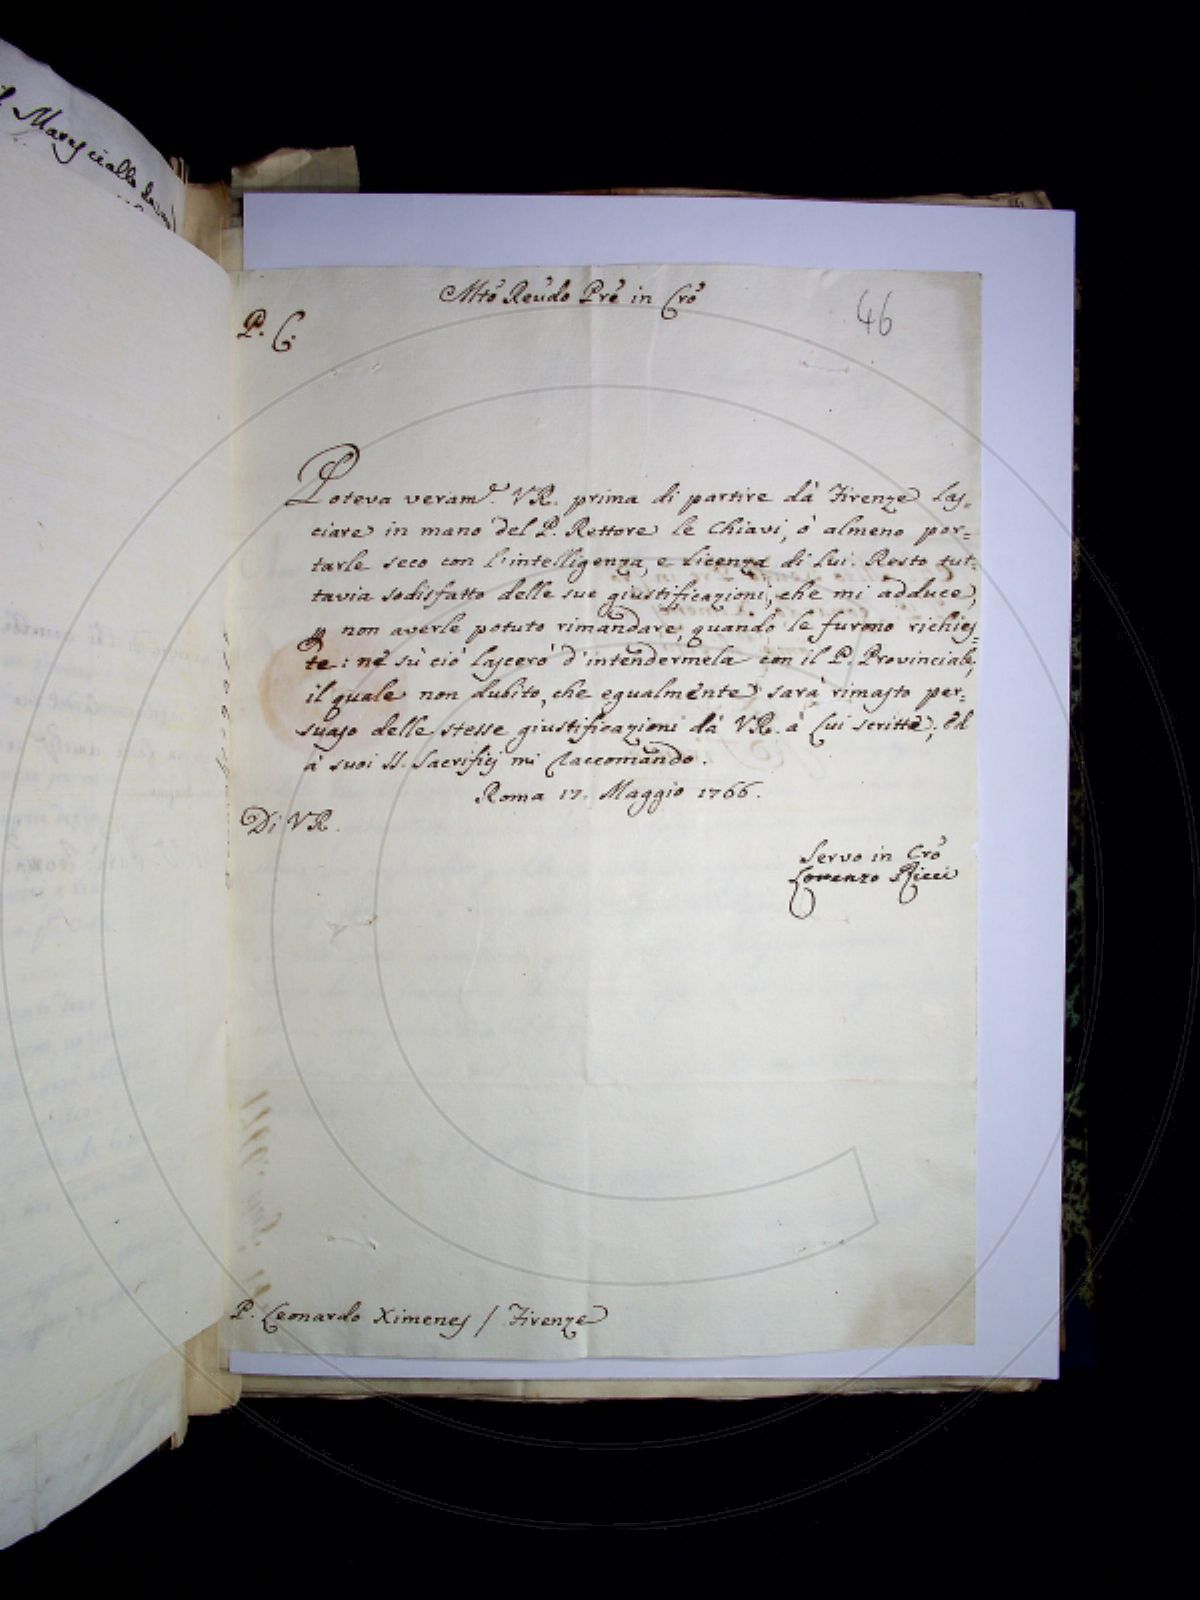 Maresciallo
Mto Revdo Pre in Cro
P. C.
46
Poteva veramte. VR. prima di partire dà Firenze las-
ciare in mano del P. Rettore le Chiavi, ò almeno por-
tarle seco con l'intelligenza, e Licenza di Lui. Resto tut-
tavia sodisfatto delle sue giustificazioni, che mi adduce,
p non averle potuto rimandare, quando le furono richies-
te: nè sù ciò lascerò d'intendermela con il P. Provinciale,
il quale non dubito, che egualmente sarà rimasto per-
suaso delle stesse giustificazioni dà VR. à Lui scritte; Ed
à suoi SS. Sacrifici mi raccomando.
Roma 17. Maggio 1766.
Di VR.
Servo in Cro
Lorenzo Ricci
P. Leonardo Ximenes / Firenze